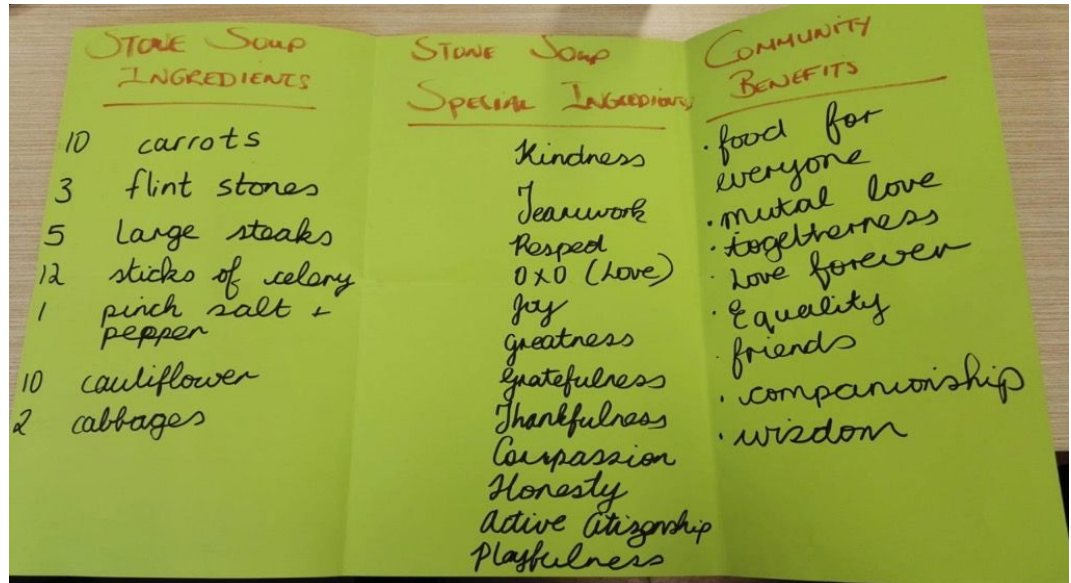 STONE SOUP
INGREDIENTS
10 carrots
3 flint stones
5 Large steaks
12 sticks of celery
1 pinch salt +
pepper
10 cauliflower
2 cabbages
STONE SOUP
SPECIAL INGREDIENTS
Kindness
Teamwork
Respect
OXO (Love)
Joy
greatness
gratefulness
Thankfulness
Compassion
Honesty
Active Citizenship
Playfulness
COMMUNITY
BENEFITS
· food for
everyone
· mutal love
· togetherness
· Love forever
· Equality
· friends
· companionship
· wisdom